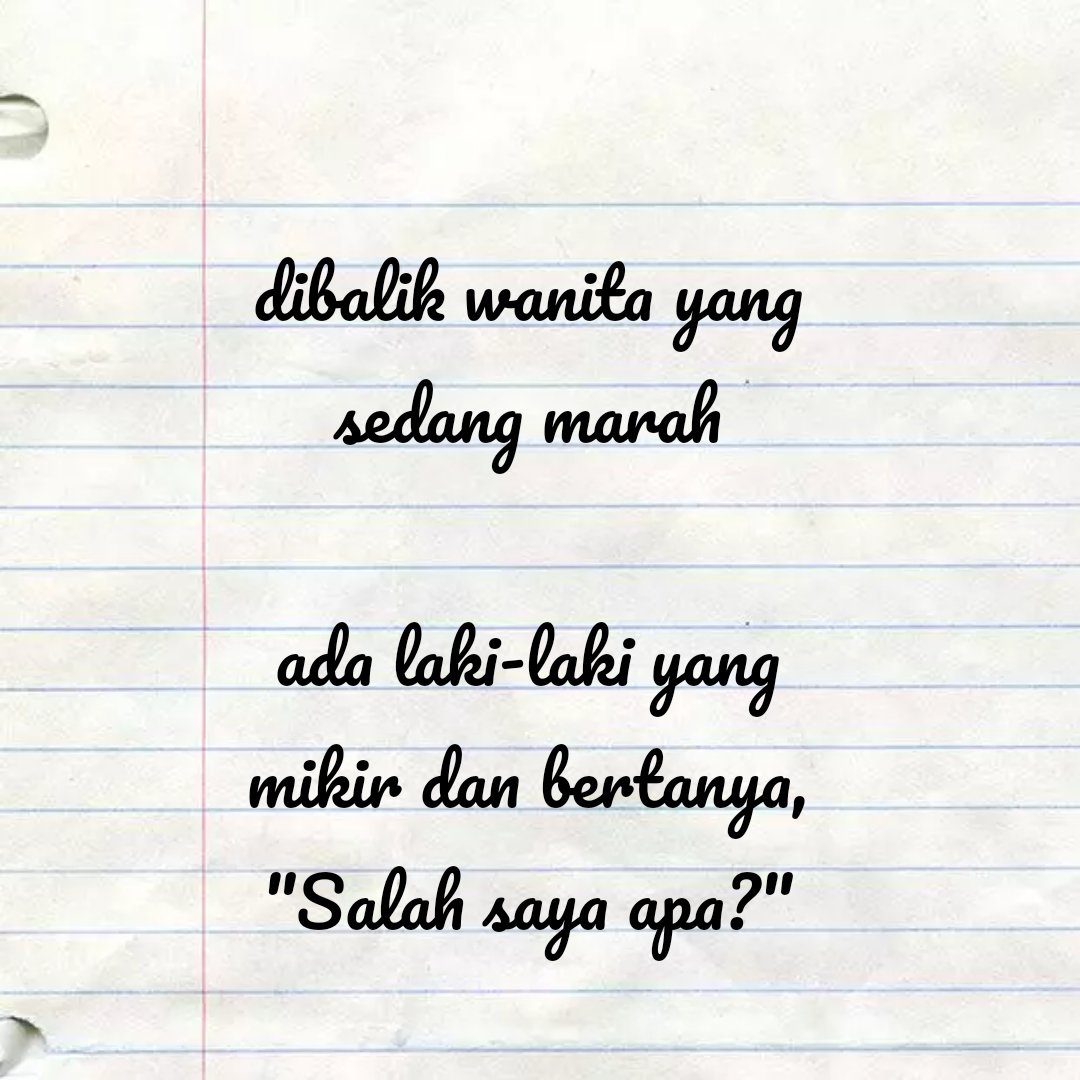 dibalik wanita yang
sedang marah
ada laki-laki yang
mikir dan bertanya,
"Salah saya apa?"